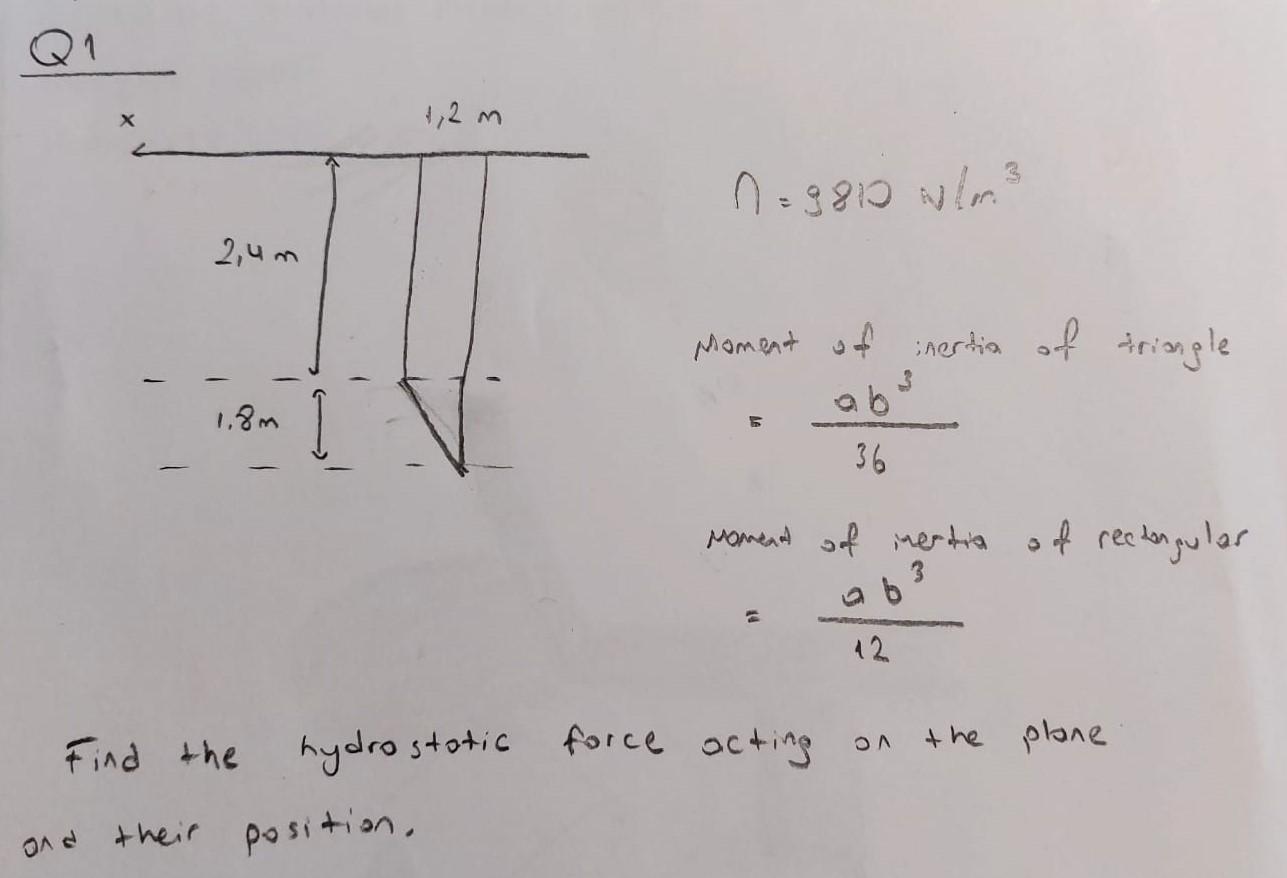 Q1
x
1,2 m
2,4 m
1.8m
n = 9810 N/m³
Moment of inertia of triangle
= ab³
36
Moment of inertia of rectangular
= ab³
12
Find the hydrostatic force acting on the plane
and their position.